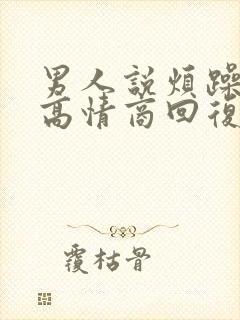 男人說煩躁
高情商回復
覆枯骨